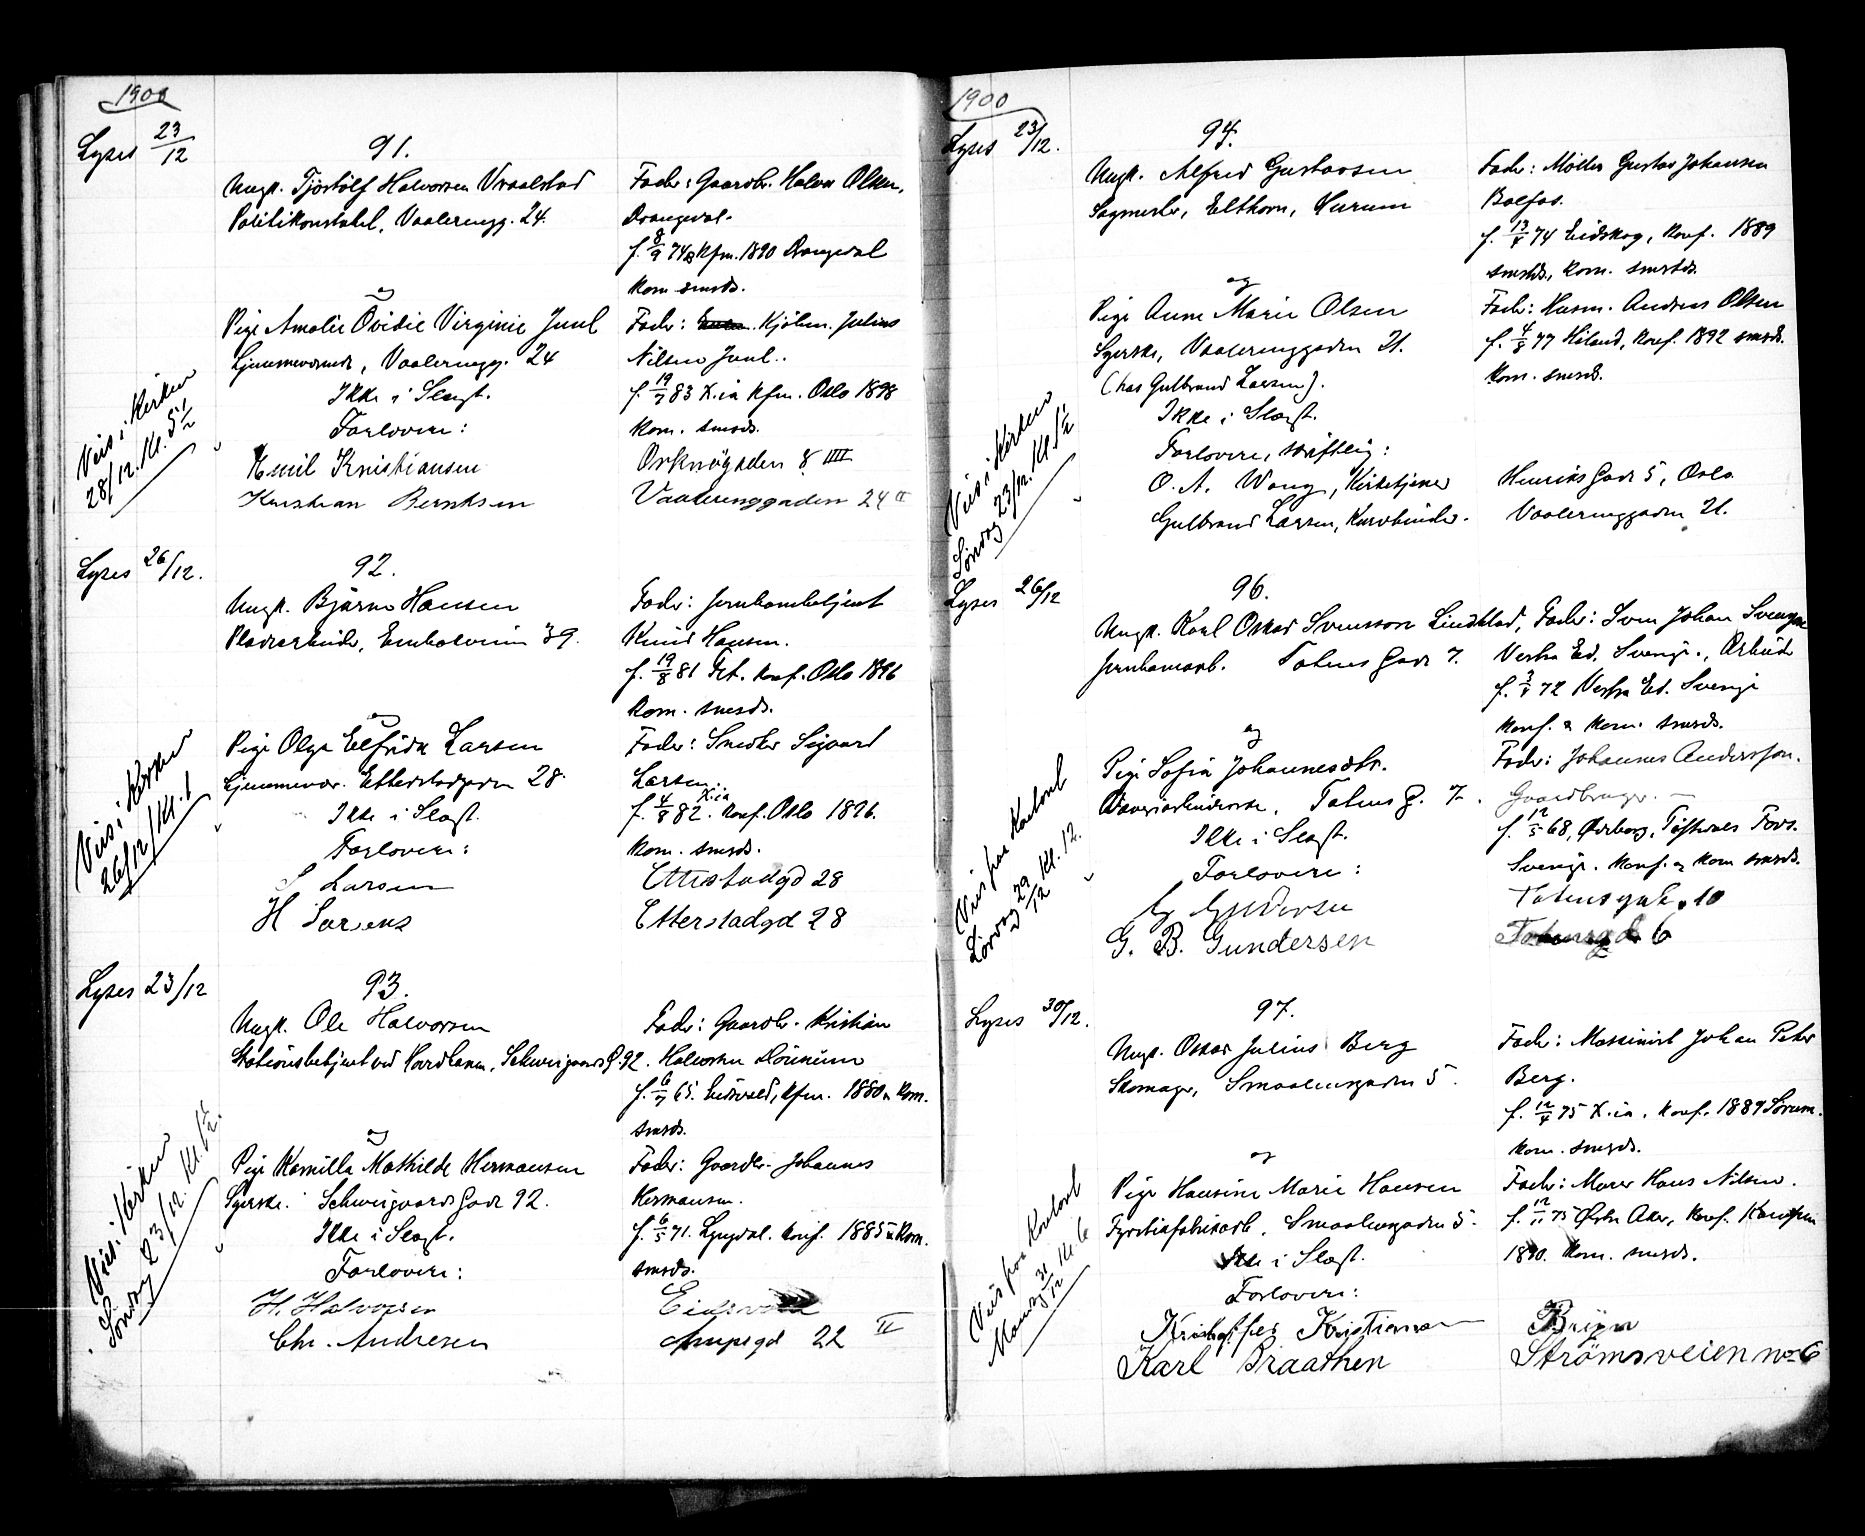 1900
Lyses 23/12
91.
Ungk. Tjöstölf Halvorsen Vraalstad
Politikonstabel, Vaalerengg. 24.
Fader: Gaardbr. Halvor Olsen,
Drangedal.
f. 8/9 74 & Kfm. 1890 Drangedal
kom smsds.
og
Pige Amalie Ovidie Virginie Juul
hjemmeværende, Vaalerengg. 24
Ikke i Slægt.
Forlovere:
Emil Kristiansen
Kristian Berntsen
Fader: Kjöbm. Julius
Nilsen Juul.
f. 19/7 83 X.ia Kfm. Oslo 1898
kom. smsds.
Orknögaden 8 IIII
Vaalerenggaden 24 II
Viet i Kirken
28/12. Kl. 5 1/2
Lyses 26/12.
92.
Ungk. Bjarne Hansen
Pladsarbeider, Enebakveien 39.
Fader: Jernbanebetjent
Knud Hansen.
f. 19/8 81 Konf. Oslo 1896
kom. smsds.
og
Pige Olga Elfrida Larsen
hjemmevær. Etterstadgaden 28.
Ikke i Slægt.
Forlovere:
S Larsen
H Larsens
Fader: Smeder Sigvard
Larsen.
f. 4/8 82. X.ia Konf. Oslo 1896.
kom. smsds.
Etterstadgd 28
Etterstadgd 28
Viet i Kirken
26/12 Kl. 1
Lyses 23/12
93.
Ungk. Ole Halvorsen
Stationsbetjent ved Hovedbanen, Schweigaards G. 92.
Fader: Gaardbr. Kristian
Halvorsen Dönnum
f. 6/7 65. Eidsvold, Kfm. 1880 & kom.
smsds.
og
Pige Kamilla Mathilde Hermansen
Syerske. Schweigaards Gade 92.
Ikke i Slægt.
Forlovere:
H. Halvorsen
Chr. Andresen
Fader: Gaardbr. Johannes
Hermansen.
f. 6/5 71. Lyngdal. Konf. 1885 & kom.
smsds.
Eidsvold
22 II
Viet i Kirken
Söndag 23/12. Kl. 1/2
1900
Lyses 23/12.
94.
Ungk. Alfred Gustavsen
Sagmester, Elthorn, Hurum
Fader: Möller Gustav Johansen
Bolfos.
f. 13/8 74 Eidskog, Konf. 1889
smsds, kom. smsds.
og
Pige Anne Marie Olsen
Syerske, Vaalerenggaden 21.
(hos Gulbrand Larsen).
Ikke i Slægt.
Forlovere, skriftlig:
O. A. Wang, Kirketjener
Gulbrand Larsen, Kurvbinder.
Fader: Husm. Andreas Olsen
f. 4/8 77 Höland, Konf. 1892 smsds.
kom. smsds.
Henriks Gade 5, Oslo
Vaalerenggaden 21.
Viet i Kirken
Söndag 23/12. Kl. 1/2
Lyses 26/12
96.
Ungk. Karl Oskar Svensson Lindblad,
Jernbanearb. Totens Gade 7.
Fader: Sven Johan Svensson
Vestra Ed. Sverige, Arbeider
f. 3/8 72 Vestra Ed. Sverige
Konf. & kom. smsds.
og
Pige Sofia Johannesdtr.
Totens G. 7.
Ikke i Slægt.
Forlovere:
G. B. Gundersen
Fader: Johannes Andersson.
Gaardbruger.
f. 12/5 68, Ödeborg, Fors.
Sverige. Konf. & kom smsds.
Totensgade 10
Totensgd 6
Viet paa Kontoret
Lördag 29/12 Kl. 12.
Lyses 30/12.
97.
Ungk. Oskar Julius Berg
Skomager, Smaalensgaden 5.
Fader: Maskinist Johan Peter
Berg.
f. 12/4 75 X.ia, Konf. 1889 Sörum.
kom. smsds.
og
Pige Hansine Marie Hansen
Fyrstikfabrikarb. Smaalensgaden 5.
Ikke i Slægt.
Forlovere:
Kristoffer Kristiansen
Karl Braathen
Fader: Murer Hans Nilsen.
f. 12/11 75 Östre Aker, Konf. Kampen
1890. kom. smsds.
Bryn
Strömsveien No 6
Viet paa Kontoret
Mandag 31/12 Kl. 6